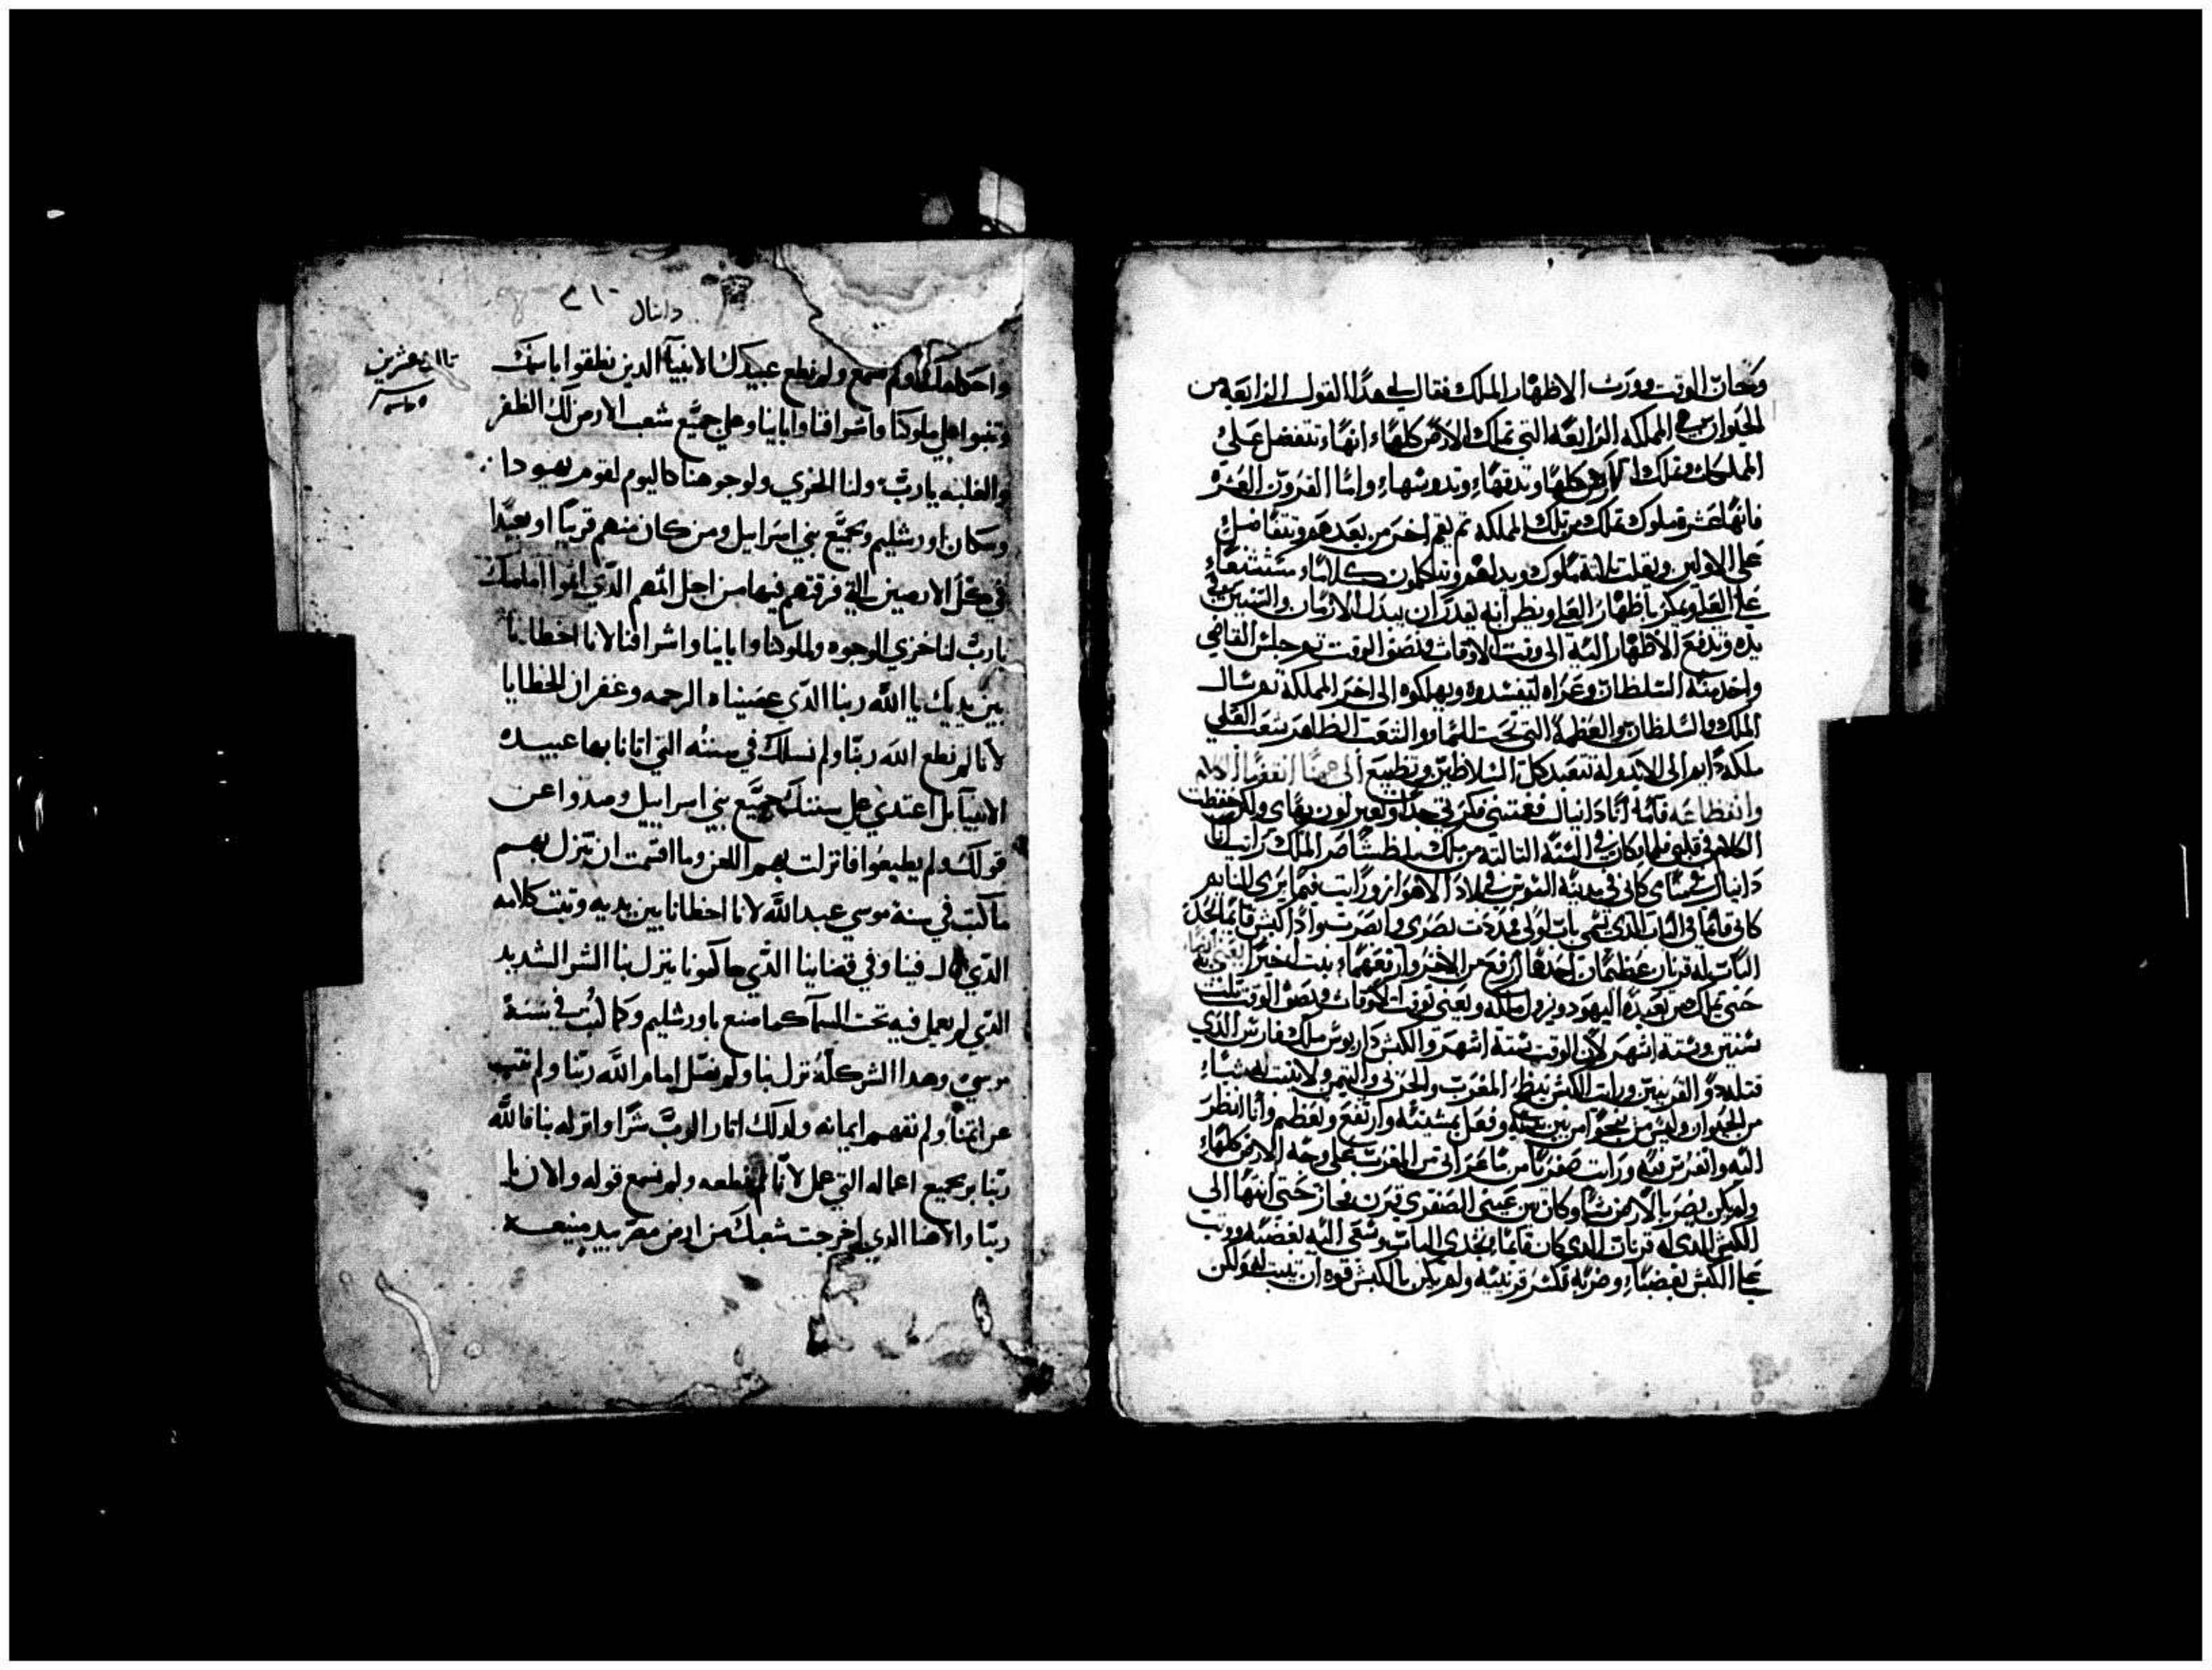 وحان الوقت وورث الاظهار الملك فقال لي هدا القول الرابعه من
الحيوان هي المملكه الرابعه التي تملك الارض كلها انها تتفضل على
المملكات وتملك الارض كلها وتدقها وتدوسها واما القرون العشره
فانها عشرة ملوك تملك من تلك المملكه ثم يقم اخر من بعدهم ويتفاضل
على الاولين ويفلت ثلاثة ملوك ويدلهم ويتكلمون كلاما مستشنعا
على العلي ويمكر باظهار العلي ويظن انه يقدر ان يبدل الازمان والسنين
يده ويدفع الاظهار اليه الى وقت الاوقات ونصف الوقت ثم جلس القاضي
واخد منه السلطان وعزاه ليفسدوه ويهلكوه الى اخر المملكة ثم سال
الملك والسلطان والعظمة التي تحت السما والشعب الظاهر شعب العلي
ملكه دايم الى الابد وله تتعبد كل السلاطين وتطيع الى هنا انقضا الكلام
فانه انا دانيال فكرتي جدا ولكن حفظت
الكلام في قلبي فلما كان في السنه التالته من ملك بلطشاصر الملك رايت انا
دانيال في مناي كاني في مدينه السوس في بلاد الاهواز ورايت فيما يرى النايم
كاني قايما في الباب الدي يسمى باب اولي فمددت بصري وابصرت واذا كبش قايما بحدى
الباب له قرنان عظيمان احدهما ارفع من الاخر وارفعهما نبت اخيرا
حتى تملك من بعيده اليهود ويزول ملكه ويعني بوقت الاوقات ونصف الوقت ثلث
سنين وستة اشهر لان الوقت ستة اشهر والكبش داريوش ملك فارس الدي
قتله دو القرنين ورايت الكبش ينطح المغرب والجربي واليمن ولا يثبت له شيا
من الحيوان وليس من ينجوا من بين يديه وفعل بمشيته وارتفع وتعظم وانا انظر
اليه واتفرس فيه ورايت صفريا من ماعز اتى من المغرب على وجه الارض كلها
ولم يكن يضر بالارض شيا وكان بين عيني الصفري قرن نجاز حتى انتها الى
الكبش الدي له قرنان الدي كان قايما بحدى الباب وسعى اليه بغضبه ووثب
على الكبش بغضبا وضربه فكسر قرنيه ولم يكن بالكبش قوه ان يثبت له ولكن
دانيال
واحكامك ولم نسمع ولم نطع عبيدك الانبيآ الدين نطقوا باسمك
وتنبوا على ملوكنا واشرافنا وابابنا وعلى جميع شعب الارض لك الظفر
والغلبه يا رب ولنا الخزي ولوجوهنا كاليوم لقوم يهودا
وسكان اورشليم وبجميع بني اسراييل ومن كان منهم قريبا او بعيدا
في كل الارضين التي فرقتهم فيها من اجل اثمهم الدي اثموا امامك
يا رب لنا خزي الوجوه ولملوكنا وابابنا واشرافنا لانا اخطانا
بين يديك يا الله ربنا الدي عصيناه الرحمه وغفران للخطايا
لانا لم نطع الله ربنا ولم نسلك في سننه التي اتانا بها عبيده
الانبيآ بل اعتدي على سننك جميع بني اسراييل وصدوا عن
قولك ولم يطيعوا فانزلت بهم اللعن وما اقسمت ان تنزل بهم
ما كتب في سنة موسي عبد الله لانا اخطانا بين يديه وثبت كلامه
الدي قال فينا وفي قضاينا الدي حاكمونا ينزل بنا الشر الشديد
الدي لم يعمل فيه تحت السمآ كما صنع باورشليم وكما كتب في سنة
موسي وهدا الشر كله نزل بنا ولم نصل امام الله ربنا ولم نتب
عن اثمنا ولم نفهم ايمانه ولدلك اثار الرب شرا وانزله بنا فالله
ربنا بر بجميع اعماله التي عمل لانا لم نطعه ولم نسمع قوله والان يا
ربنا والاهنا الدي اخرجت شعبك من ارض مصر بيد منيعه